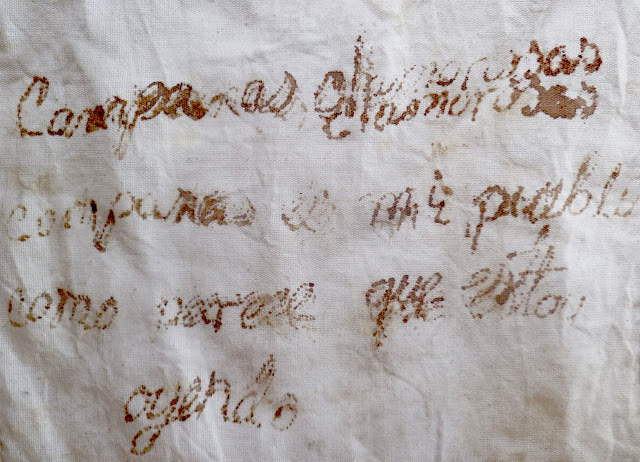 Campanas clamorosas
campanas de mi pueblo
como parece que estoy
oyendo